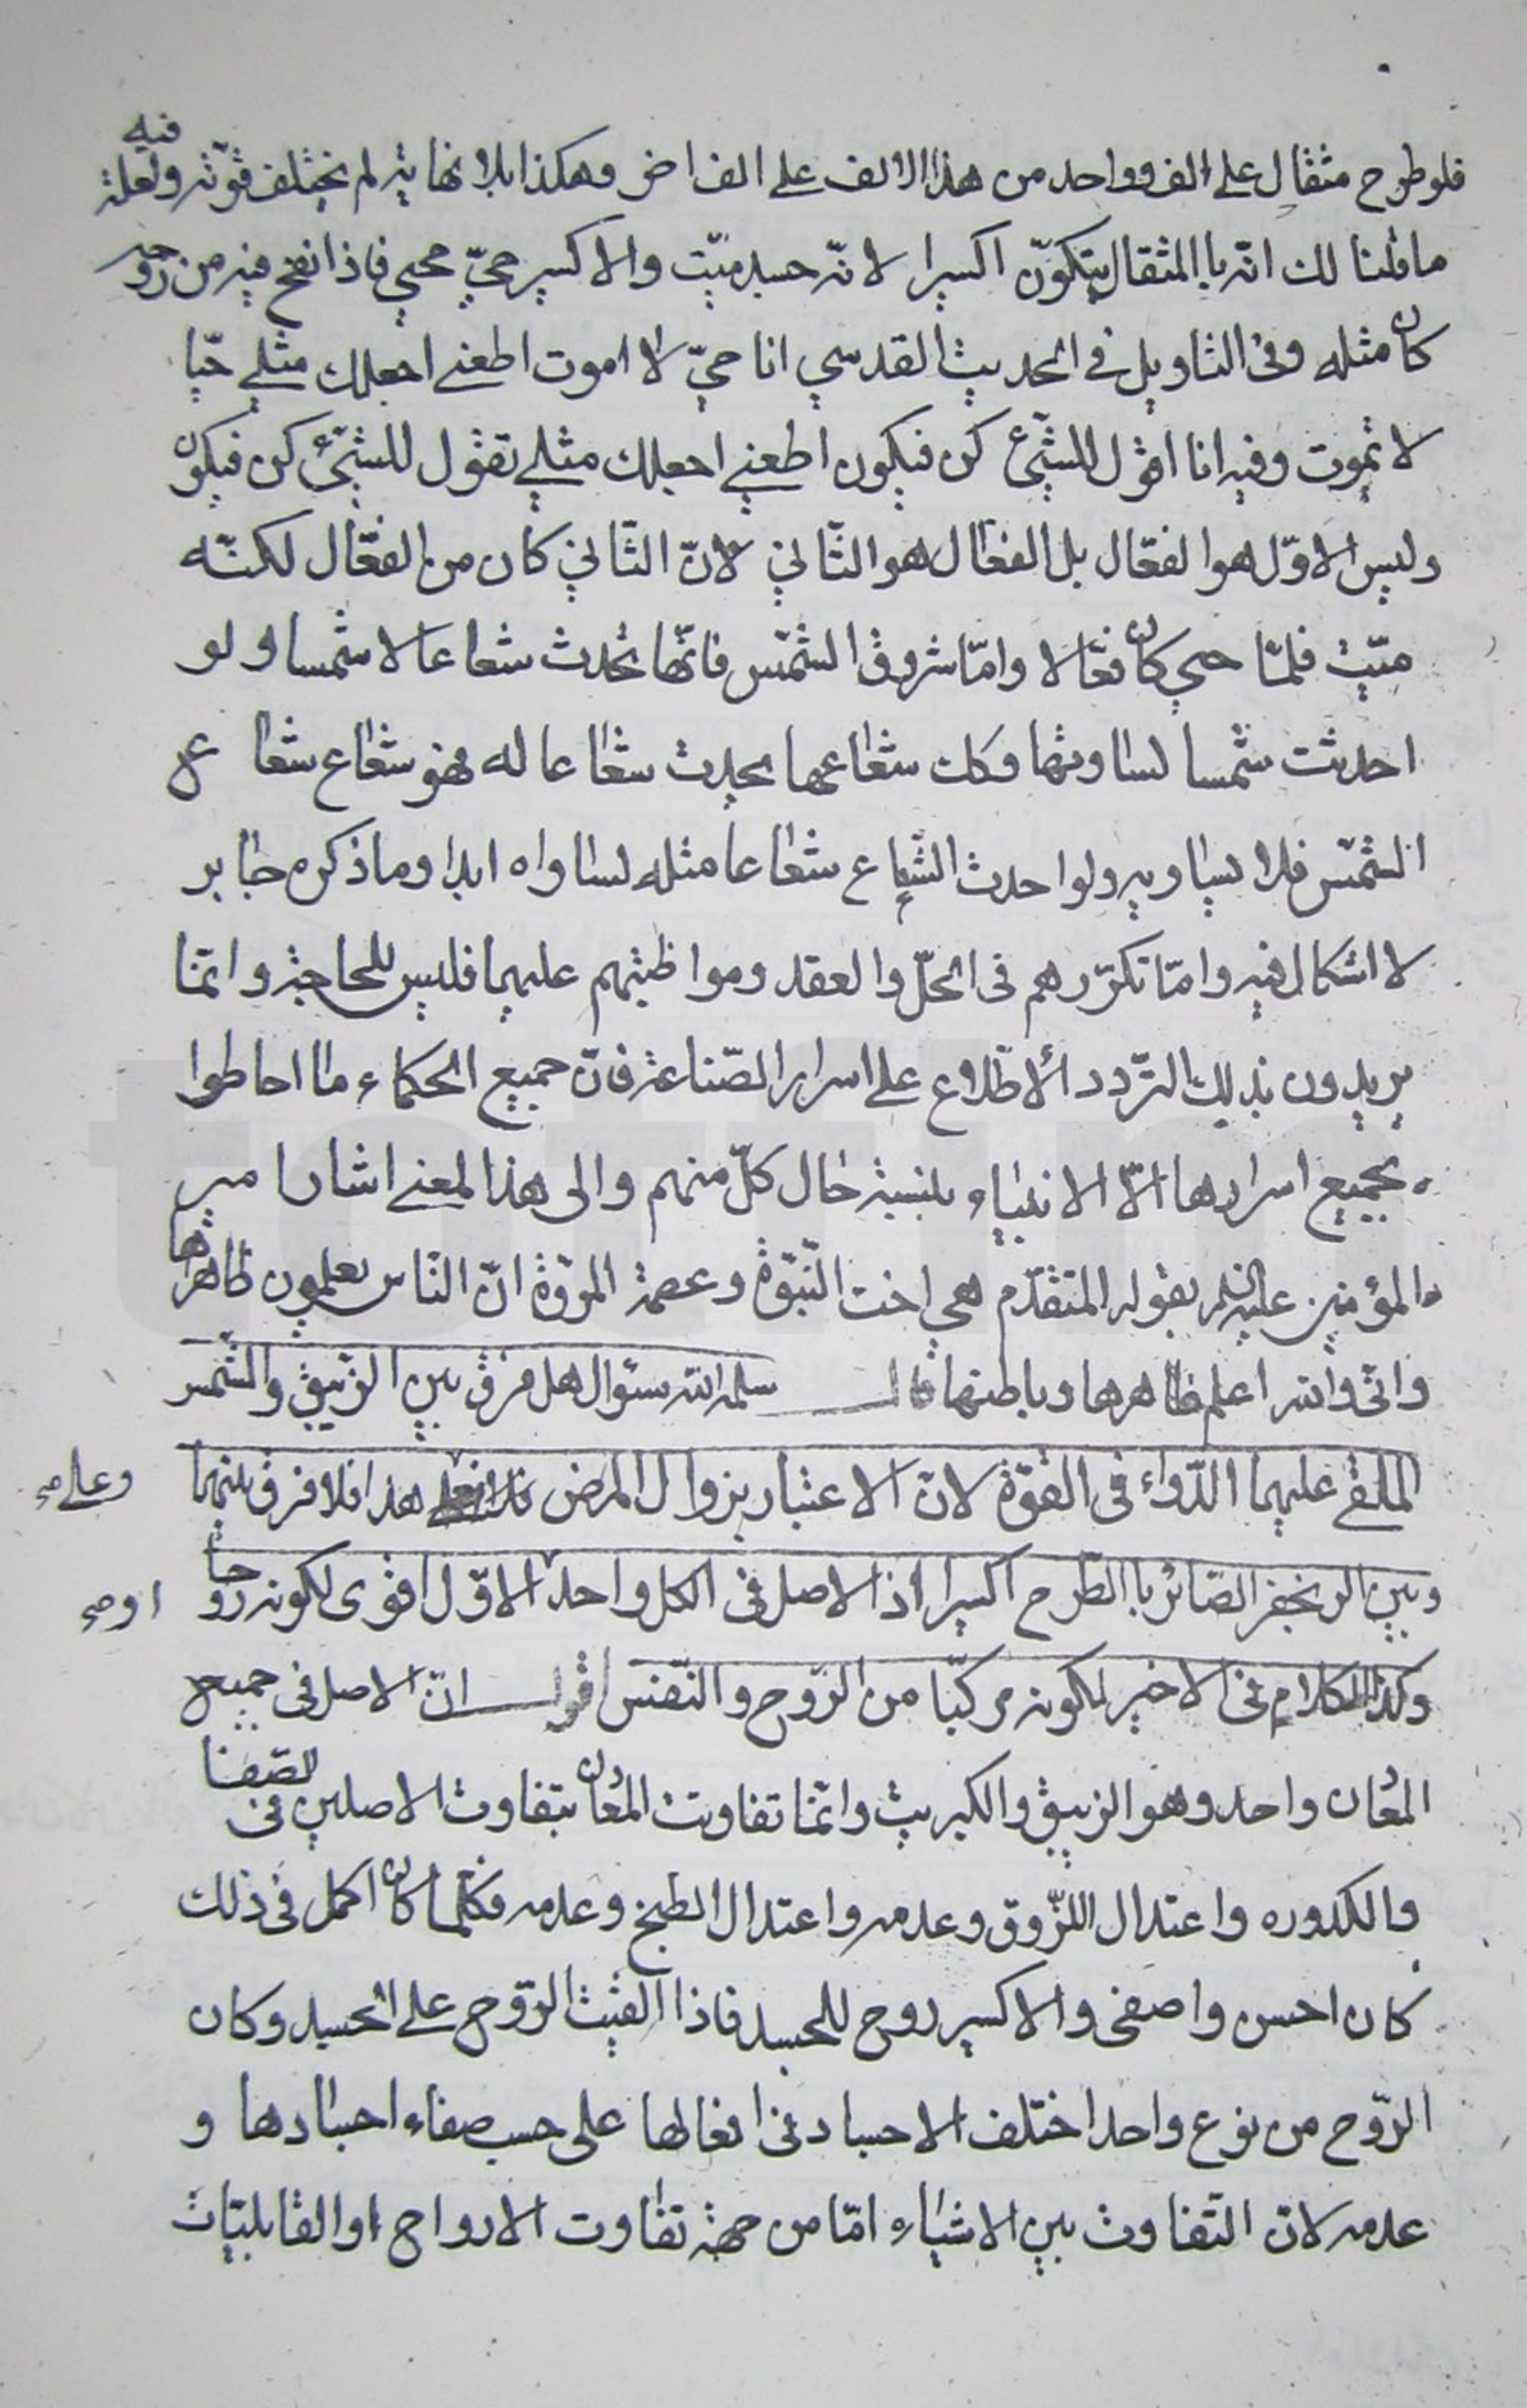 فلو طرح مثقال على الف وواحد من هذا الالف على الف اخر وهكذا بلا نهاية لم تختلف قوّته ولعلة فيه
ما قلنا لك انّه باالمثقال يتكوّن اكسيرا لانّه جسد ميّت والاكسير حيّ محيي فاذا نفخ فيه من روحه
كان مثله وفى التاويل في الحديث القدسي انا حيّ لا اموت اطعنى اجعلك مثلي حيّا
لا تموت وفيه انا اقول للشّيئ كن فيكون اطعني اجعلك مثلي تقول للشّيئ كن فيكون
وليس الاوّل هو الفعّال بل الفعّال هو الثّاني لانّ الثاني كان من الفعّال لكنّه
ميّت فلمّا حيي كان فعّالا وامّا شروق الشّمس فانّها تحدث شعاعا لا شمسا ولو
احدثت شمسا لساوتها وكك شعاعها يحدث شعاعا له فهو شعاع شعاع
الشّمس فلا يساويه ولو احدث الشّعاع شعاعا مثله لساواه ابدا وما ذكره جابر
لا اشكال فيه وامّا تكرّرهم فى الحلّ والعقد ومواظبتهم عليهما فليس للحاجة وانّما
يريدون بذلك التردد الاطّلاع على اسرار الصّناعة فانّ جميع الحكماء ما احاطوا
بجميع اسرارها الّا الانبياء بنسبة حال كلّ منهم والى هذا المعنى اشار امير
المؤمنين عليه السلم بقوله المتقدّم هي اخت النّبوّة وعصمة المروّة انّ النّاس يعلمون ظاهرها
وانّى والله اعلم ظاهرها وباطنها قال سلمه الله سئوال هل فرق بين الزّيبق والشّمس
الملقى عليهما الدّواء فى القوّة لانّ الاعتبار بزوال المرض هذا فلا فرق بينهما وعلى صح
وبين الزنجفر الصّائر باالطّرح اكسيرا اذ الاصل فى الكل واحد الاوّل اقوى لكونه روحا او صح
وكذا الكلام فى الاخير لكونه مركبّا من الرّوح والنّفس اقول انّ الاصل فى جميع
المعادن واحد وهو الزيبق والكبريت وانّما تفاوتت المعادن بتفاوت الاصلين فى الصّفا
والكدوره واعتدال اللزّوق وعدمه واعتدال الطبخ وعدمه فكلّما كان اكمل فى ذلك
كان احسن واصفى والاكسير روح للجسد فاذا القيت الرّوح على الجسد وكان
الرّوح من نوع واحد اختلف الاجساد فى افعالها على حسب صفاء اجسادها و
عدمه لانّ التّفاوت بين الاشياء امّا من جهة تفاوت الارواح او القابليّات